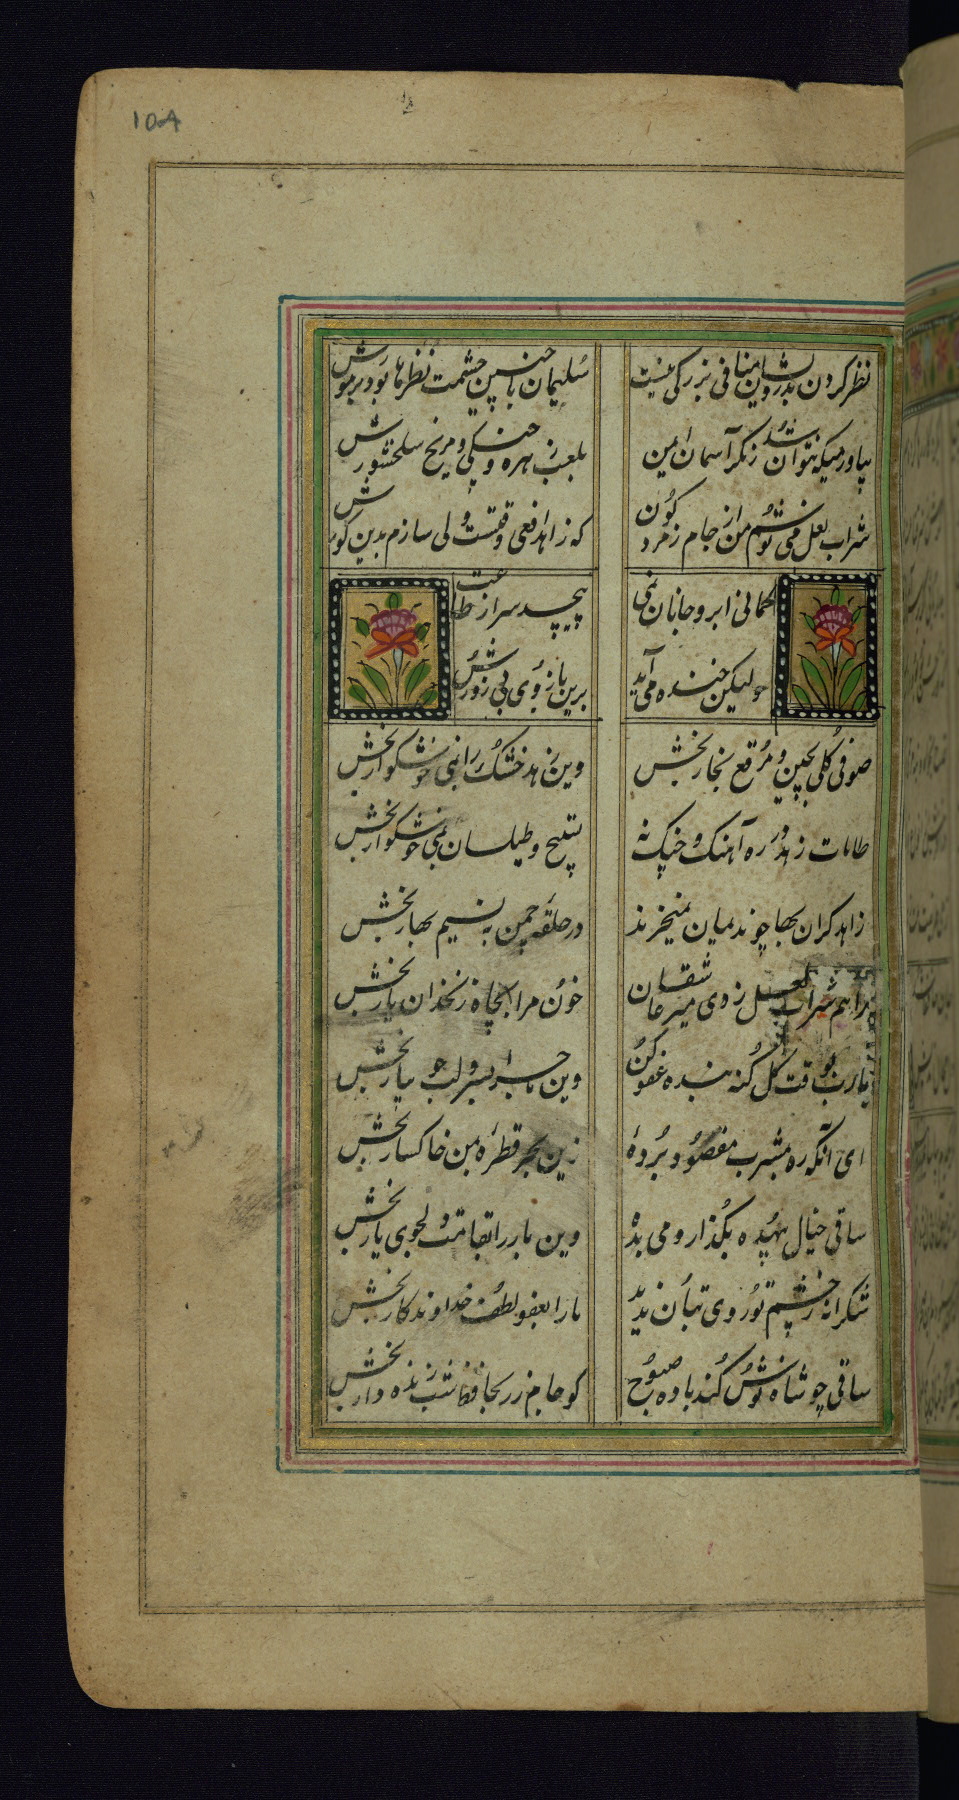 108
نظر کردن بدرویشان منافی بزرگی نیست
سلیمان با چنین حشمت نظرها بود بر مورش
بیاور می که نتوان شد ز مکر آسمان ایمن
بلعب زهره چنگی و مریخ سلحشورش
شراب لعل می نوشم من از جام زمرد گون
که زاهد افعی وقتست ولی سازم بدین کورش
کمانی ابرو جانان نمی
پیچد سر از طاعت
ولیکن خنده می آید
برین بازوی بی زورش
صوفی کلی بچین و مرقع بخار بخش
وین زهد خشک را بمی خوشکوار بخش
طامات زهد در ره آهنک و چنک نه
تسبیح و طیلسان بمی خوشکوار بخش
زاهد کران بها چو ندیمان نمیخرند
در حلقه چمن به نسیم بهار بخش
راهم شراب لعل زد ای میر عاشقان
خون مرا بچاه زنخدان یار بخش
یارب بوقت کل کنه بنده عفو کن
وین ماجرا بسرو لب جویبار بخش
ای آنکه ره بمشرب مقصود برده
زین بحر قطره بمن خاکسار بخش
ساقی خیال بیهده بگذار و می بده
شکرانه ز چشم تو روی بتان ندید
ما را بعفو لطف خداوندکار بخش
ساقی چو شاه نوش کند باده صبوح
کو جام زر بحافظ شب زنده دار بخش